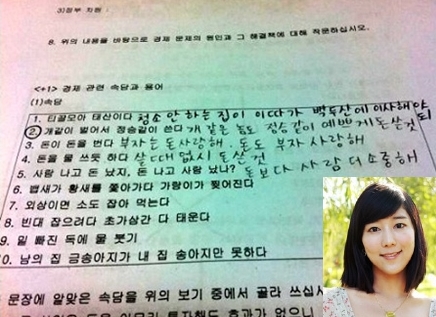 3)정부 차원 :
8. 위의 내용을 바탕으로 경제 문제의 원인과 그 해결책에 대해 작문하십시오.
<+1> 경제 관련 속담과 용어
(1)속담
1. 티끌모아 태산이다 청소 안 하는 집이 이따가 백두산에 이사해야 되
2. 개같이 벌어서 정승같이 쓴다 개 같은 놈도 정승 같이 예쁘게 돈 쓴 것
3. 돈이 돈을 번다 부자는 돈 사랑해. 돈도 부자 사랑해
4. 돈을 물 쓰듯 하다 살 때 없시 돈 쓴 것
5. 사람 나고 돈 났지, 돈 나고 사람 났나? 돈보다 사람 더 소중해
6. 뱁새가 황새를 쫓아가다 가랑이 찢어진다
7. 외상이면 소도 잡아 먹는다
8. 빈대 잡으려다 초가삼간 다 태운다
9. 밑 빠진 독에 물 붓기
10. 남의 집 금송아지가 내 집 송아지만 못하다
문장에 알맞은 속담을 위의 보기 중에서 골라 쓰십시